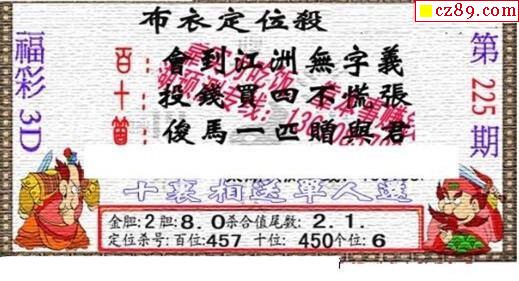 cz89.com
布衣定位殺
福彩3D
第225期
百:會到江洲無字義
十:投錢買四不慌張
個:俊馬一匹贈與君
金胆:2胆:8.0杀合值尾数:2.1.
定位杀号:百位:457 十位:450个位:6